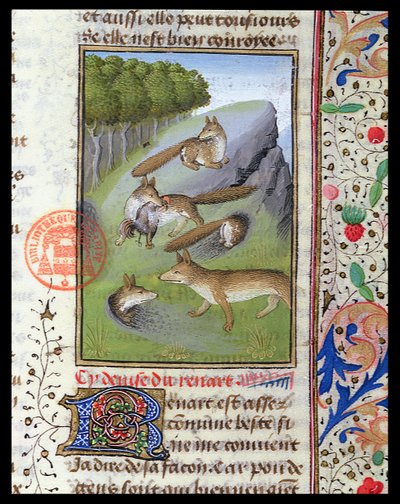 et aussi elle peut tousiours
Se elle nest bien couroyee
Cy deuise du renart
Renart est assez
comune beste si
ne me conuient
ia dire de sa facon. Car pou de
gens sont qui bien